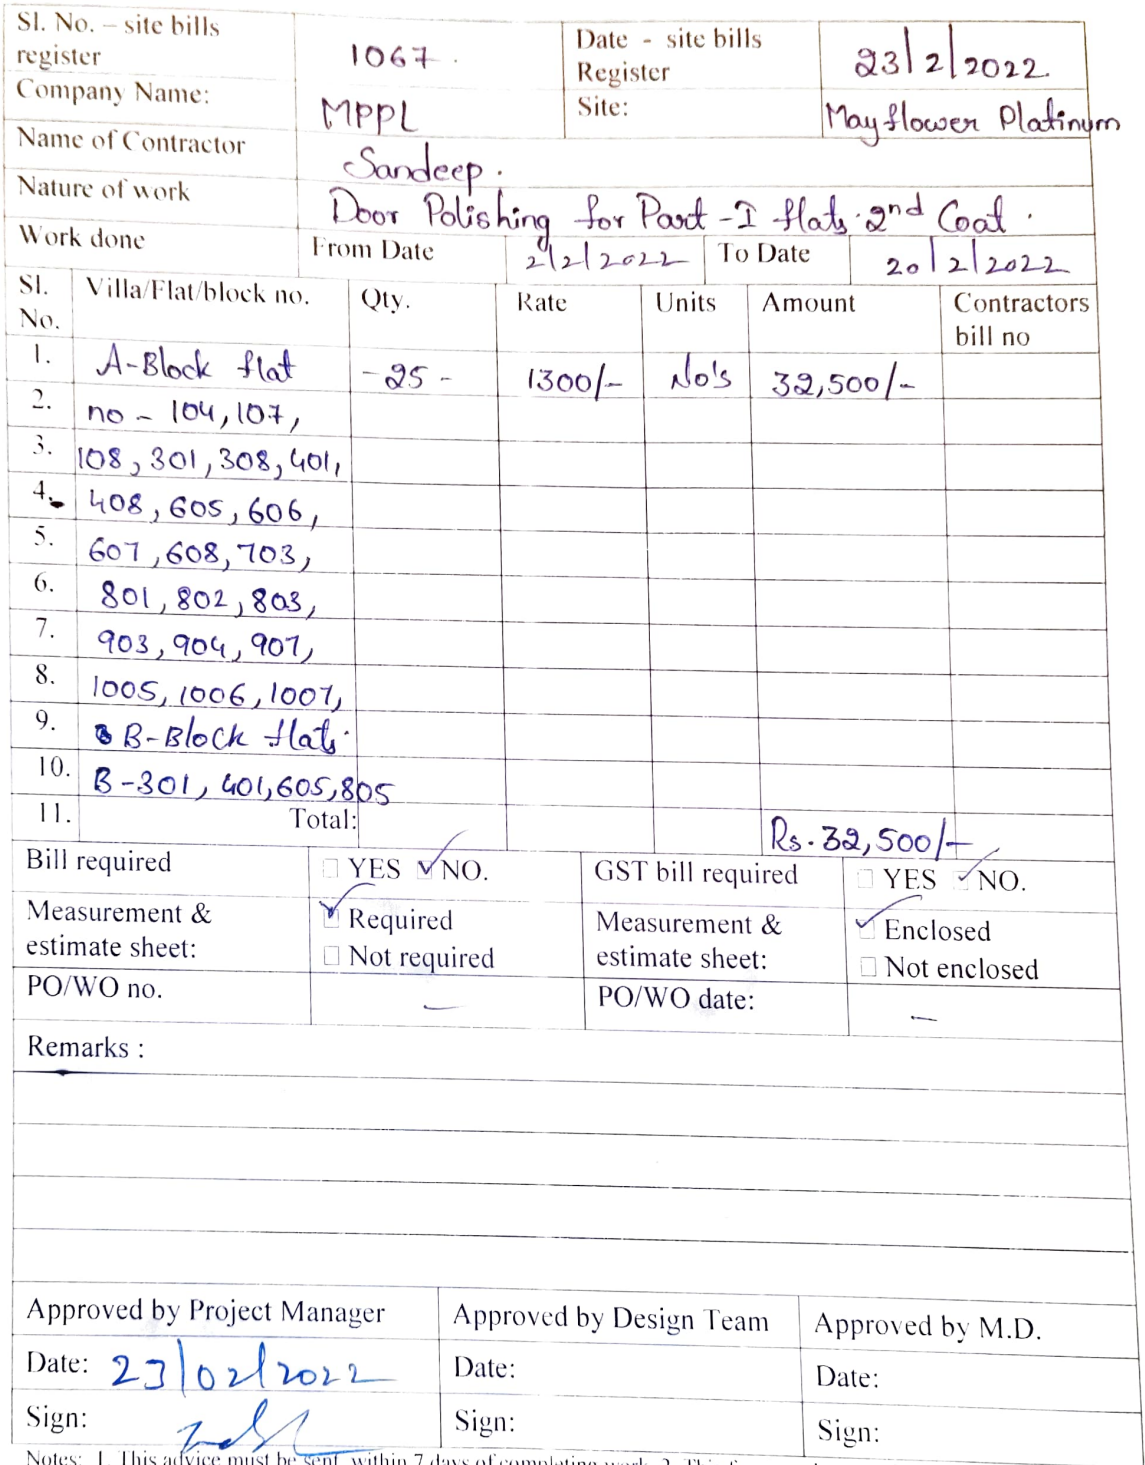 Sl. No. – site bills register 1067. Date - site bills Register 23/2/2022
Company Name: MPPL Site: Mayflower Platinum
Name of Contractor Sandeep.
Nature of work Door Polishing for Part-I flats 2nd Coat.
Work done From Date 2/2/2022 To Date 20/2/2022
Sl. No. Villa/Flat/block no. Qty. Rate Units Amount Contractors bill no
1. A-Block flat -25- 1300/- No's 32,500/-
2. no - 104, 107,
3. 108, 301, 308, 401,
4. 408, 605, 606,
5. 607, 608, 703,
6. 801, 802, 803,
7. 903, 904, 907,
8. 1005, 1006, 1007,
9. B-Block flats.
10. B-301, 401, 605, 805
11. Total: Rs. 32,500/-
Bill required YES NO. GST bill required YES NO.
Measurement & estimate sheet: Required Measurement & estimate sheet: Enclosed
Not required Not enclosed
PO/WO no. – PO/WO date: –
Remarks :
Approved by Project Manager Approved by Design Team Approved by M.D.
Date: 23/02/2022 Date: Date:
Sign: Sign: Sign:
Notes: 1. This advice must be sent within 7 days of completing work. 2. This